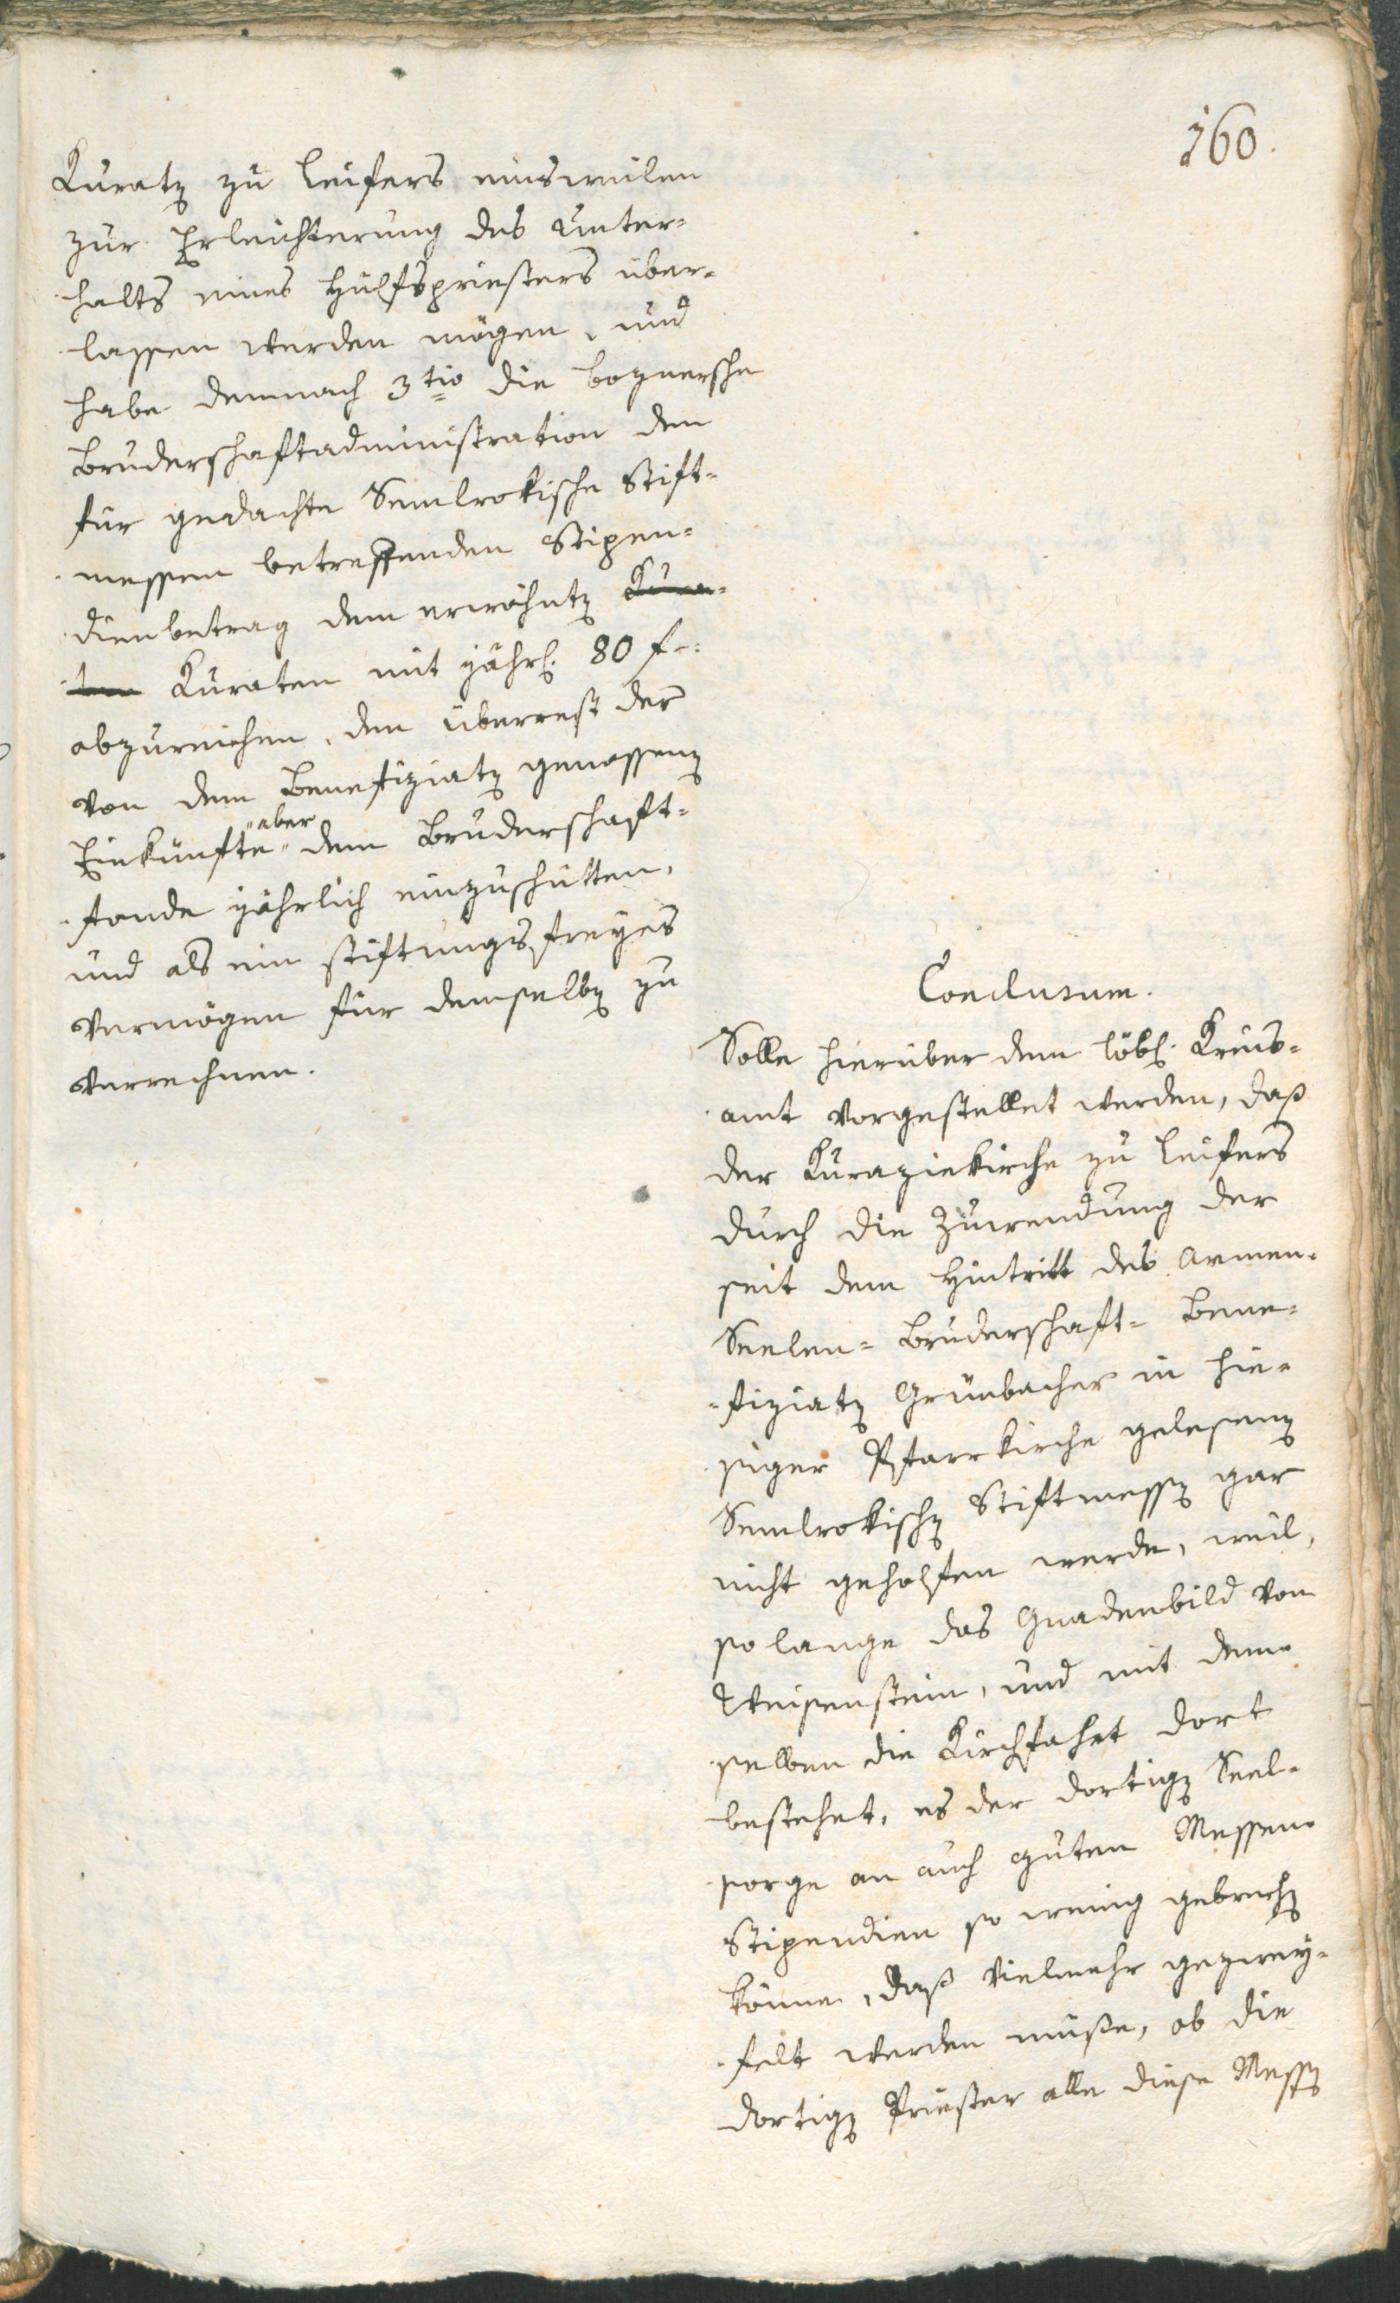 160.
Kuratz zu Leifers einsweilen
zur Erleichterung des Unter-
halts eines Hülfspriesters über-
lassen werden mögen, und
habe demnach 3tio die boznersche
Bruderschaftadministration den
für gedachte Semlrokische Stift-
messen betreffenden Stipen-
dienbetrag dem erwähntz Kura-
ten Kuraten mit jährl. 80 f:
abzureichen, den Überrest der
von dem Benefiziatz genossenz
Einkünfte aber dem Bruderschaft-
fonde jährlich einzuschütten,
und als ein stiftungsfreyes
Vermögen für denselbz zu
verrechnen.
Conclusum.
Solle hierüber dem löbl. Kreis-
amt vorgestellet werden, daß
der Kuraziekirche zu Leifers
durch die Zuwendung der
seit dem Hintritt des Armen-
Seelen-Bruderschaft-Bene-
fiziatz Grünbacher in hie-
siger Pfarrkirche gelesenz
Semlrokischz Stiftmessz gar
nicht geholfen werde, weil,
so lange das Gnadenbild von
Weisenstein, und mit dem-
selben die Kirchfahrt dort
bestehet, es der dortigz Seel-
sorge an auch guten Messen-
Stipendien so wenig gebrechz
könne, daß vielmehr gezwey-
felt werden müße, ob die
dortigz Priester alle diese Messz